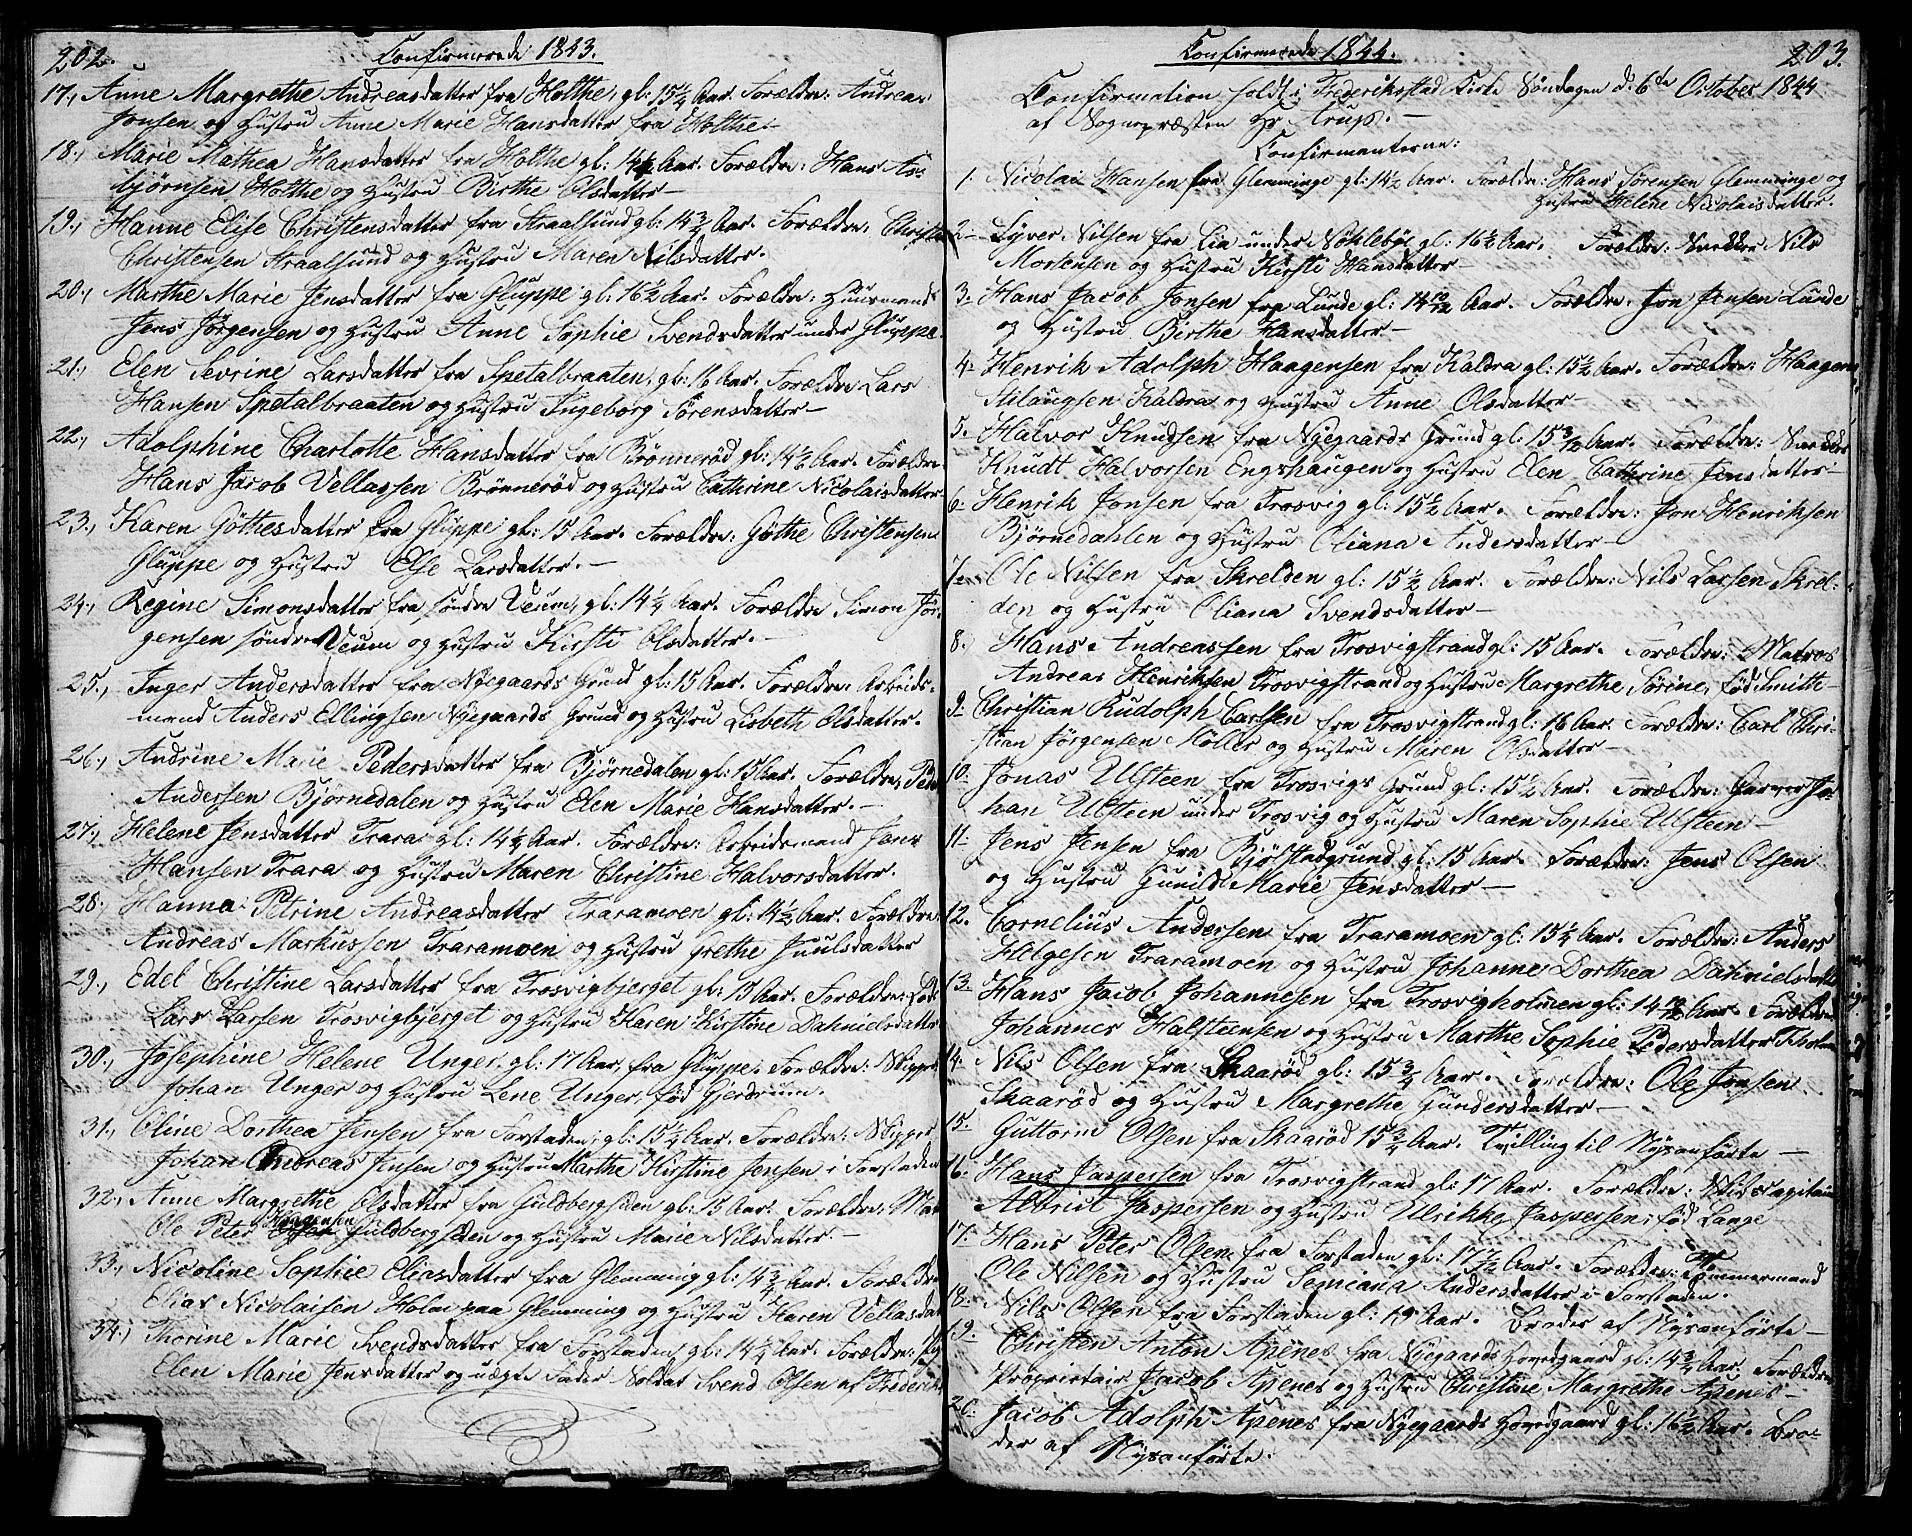 202. Confirmerede 1843.
17., Anne Margrethe Andreasdatter fra Holthe, gl: 15 1/4 Aar. Forældre: Andreas
Jonsen og Hustru Anne Marie Hansdatter fra Holthe.–
18., Marie Mathea Hansdatter fra Holthe gl: Aar. Forældre: Hans As-
bjørnsen Holthe og Hustru Birthe Olsdatter –
19., Hanne Elise Christensdatter fra Straalsund gl: 14 3/4 Aar. Forældre:
Christensen Straalsund og Hustru Maren Nilsdatter.
20., Marthe Marie Jensdatter fra Gluppe gl: 16 1/2 Aar. Forældre: Huusmand
Jens Jørgensen og Hustru Anne Sophie Svendsdatter under Gluppe.
21., Elen Sevrine Larsdatter fra Spetalbraaten, gl: 16 Aar. Forældre: Lars
Hansen Spetalbraaten og Hustru Ingeborg Sørensdatter –
22., Adolphine Charlotte Hansdatter fra Brønnerød gl: Aar. Forældre
Hans Jacob Vellassen Brønnerød og Hustru Cathrine Nicolaisdatter
23., Karen Gøthesdatter fra Gluppe gl: 15 Aar. Forældre: Gøthe Christensen
Gluppe og Hustru Else Larsdatter. –
24., Regine Simonsdatter fra søndre Veum, gl: 14 1/4 Aar. Forældre Simon Jør-
gensen søndre Veum og Hustru Kirsti Olsdatter. –
25., Inger Andersdatter fra Nygaards Grund gl: 15 Aar. Forældre: Arbeids-
mand Anders Ellingsen Nygaards Grund og Hustru Lisbeth Olsdatter.
26., Andrine Marie Pedersdatter fra Bjørnedalen gl: 15 Aar. Forældre: Peder
Andersen Bjørnedalen og Hustru Elen Marie Hansdatter. –
27., Helene Jensdatter Trara gl: 14 1/2 Aar. Forældre: Arbeidsmand Jens
Hansen Trara og Hustru Maren Christine Halvorsdatter.
28., Hanna Petrine Andreasdatter Traramoen gl: 14 1/2 Aar. Forældre:
Andreas Markussen Traramoen og Hustru Grethe Juulsdatter
29., Edel Christine Larsdatter fra Trosvigbjerget gl: 15 Aar. Forældre:
Lars Larsen Trosvigbjerget og Hustru Karen Kirstine Dahnielsdatter
30., Josephine Helene Unger, gl: 17 Aar, fra Gluppe. Forældre: Skipper
Johan Unger og Hustru Lene Unger, fød Gjerdrum.
31., Oline Dorthea Jensen fra Forstaden, gl: 15 1/4 Aar. Forældre: Skipper
Johan Andreas Jensen og Hustru Marthe Kirstine Jensen i Forstaden
32., Anne Margrethe Olsdatter fra Guldbergsiden gl: 15 Aar. Forældre:
Ole Peter Haagensen Guldbergsiden og Hustru Marie Nilsdatter. –
33., Nicoline Sophie Eliasdatter fra Glemming gl: 14 3/4 Aar. Forældre
Elias Nicolaisen Holm paa Glemming og Hustru Karen
34., Thorine Marie Svendsdatter fra Forstaden, gl: 14 1/4 Aar. Forældre:
Elen Marie Jensdatter og uægte Fader Soldat Svend Olsen af
Confirmerede 1844. 203.
Confirmation holdt i Frederikstad Kirke Søndagen d: 6te October 1844
af Sognepræsten Hr Krup. –
Confirmanterne:
1. Nicolai Hansen fra Glemminge gl: 14 1/2 Aar. Forældre: Hans Sørensen Glemminge og
Hustru Helene Nicolaisdatter.
2. Syver Nilsen fra Lia under Nøkleby gl: 16 1/2 Aar. Forældre: Snedker Nils
Mortensen og Hustru Kirsti Hansdatter –
3. Hans Jacob Jonsen fra Lunde gl: 14 10/12 Aar. Forældre: Jon Jensen Lunde
og Hustru Birthe Hansdatter –
4. Henrik Adolph Haagensen fra Kaldra gl: 15 1/4 Aar. Forældre: Haagen
Stilaugsen Kaldra og Hustru Anne Olsdatter –
5. Halvor Knudsen fra Nygaards Grund gl: 15 3/12 Aar. Forældre: Snedker
Knudt Halvorsen Engshaugen og Hustru Elen Cathrine Jensdatter –
6. Henrik Jonsen fra Trosvig gl: 15 1/2 Aar. Forældre: Jon Henriksen
Bjørnedahlen og Hustru Oliana Andersdatter –
7. Ole Nilsen fra Skrelden gl: 15 1/2 Aar. Forældre: Nils Larsen Skrel-
den og Hustru Oliana Svendsdatter –
8. Hans Andreassen fra Trosvigstrand gl: 15 Aar. Forældre: Matros
Andreas Henriksen Trosvigstrand og Hustru Margrethe Sørine, fød Smitte-
9. Christian Rudolph Carlsen fra Trosvigstrand gl: 16 Aar Forældre: Carl Chri-
stian Jørgensen Møller og Hustru Maren Olsdatter –
10. Jonas Ulsteen fra Trosvigs Grund gl: 15 1/2 Aar. Forældre: Garver Jo-
han Ulsteen under Trosvig og Hustru Maren Sophie Ulsteen –
11. Jens Jensen fra Bjølstadgrund gl: 15 Aar. Forældre: Jens Olsen
og Hustru Gunild Marie Jensdatter –
12. Cornelius Andersen fra Traramoen gl: 15 1/4 Aar. Forældre: Anders
Helgesen Traramoen og Hustru Johanne Dorthea Dahnielsdatter
13. Hans Jacob Johannesen fra Trosvigholmen gl: 14 10/12 Aar. Forældre
Johannes Halsteensen og Hustru Marthe Sophie Pedersdatter
14. Nils Olsen fra Skaarød gl: 15 3/4 Aar. Forældre: Ole Jonsen
Skaarød og Hustru Margrethe Gundersdatter –
15. Guttorm Olsen fra Skaarød 15 3/4 Aar. Tvilling til Nysanførte –
16. Hans Jaspersen fra Trosvigstrand gl: 17 Aar. Forældre: Skibscapitain
Albrut Jaspersen og Hustru Ulrikke Jaspersen, fød Lange
17. Hans Peter Olsen fra Forstaden gl: 17 1/2 Aar. Forældre: Tømmermand
Ole Nilsen og Hustru Semiana Andersdatter i Forstaden.
18. Nils Olsen fra Forstaden gl: 19 Aar. Broder af Nysanførte –
19. Christen Anton Apenes fra Nygaards Hovedgaard gl: 14 3/4 Aar. Forældre
Proprietair Jacob Apenes og Hustru Christine Margrethe Apenes –
20. Jacob Adolph Apenes fra Nygaards Hovedgaard gl: 16 1/2 Aar. Bro-
der af Nysanførte.